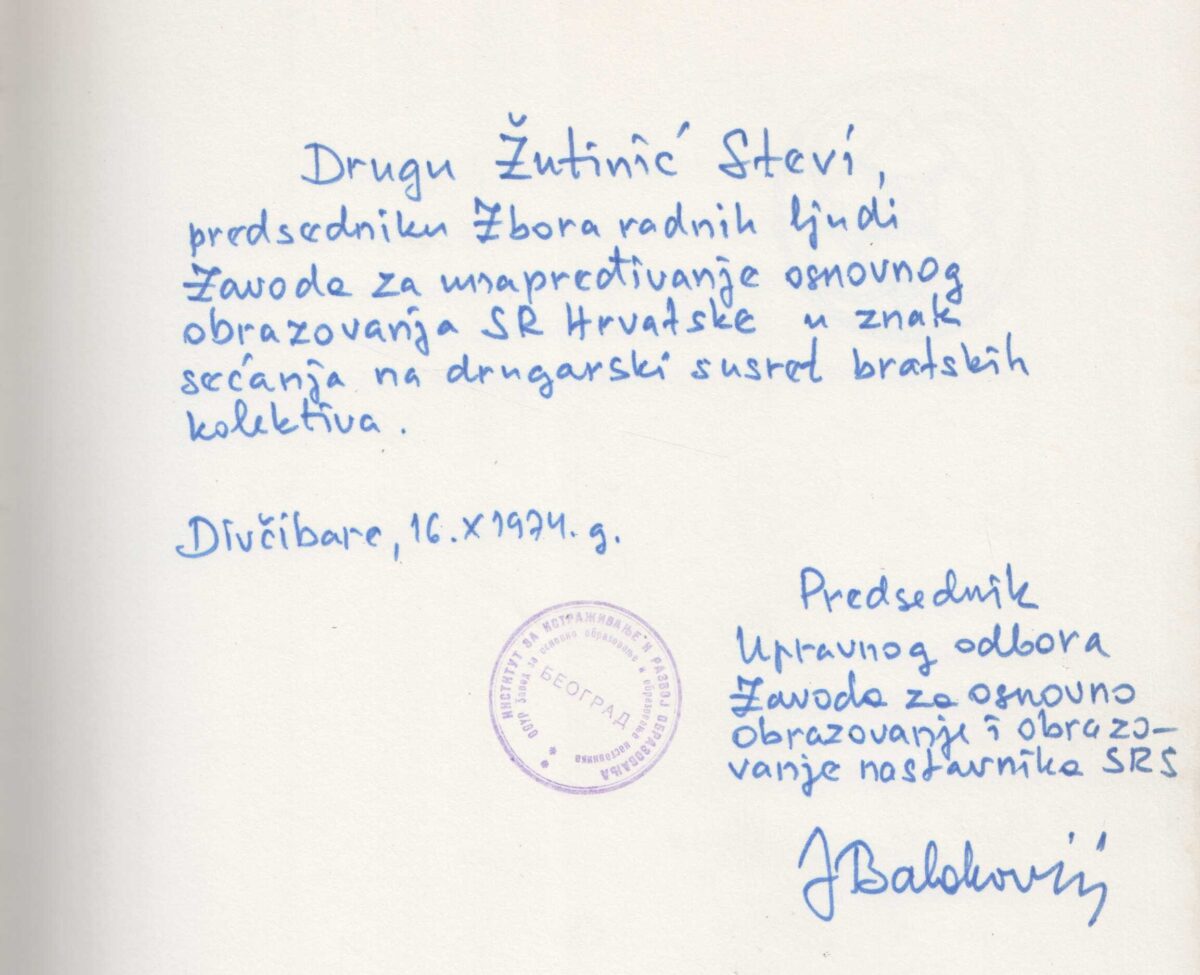 Drugu Žutinić Stevi,
predsedniku Zbora radnih ljudi
Zavoda za unapređivanje osnovnog
obrazovanja SR Hrvatske u znak
sećanja na drugarski susret bratskih
kolektiva.
Divčibare, 16.X 1974. g.
ИНСТИТУТ ЗА ИСТРАЖИВАЊЕ И РАЗВОЈ ОБРАЗОВАЊА
ООУР Завод за основно образовање и образовање наставника
БЕОГРАД
Predsednik
Upravnog odbora
Zavoda za osnovno
obrazovanje i obrazo-
vanje nastavnika SRS